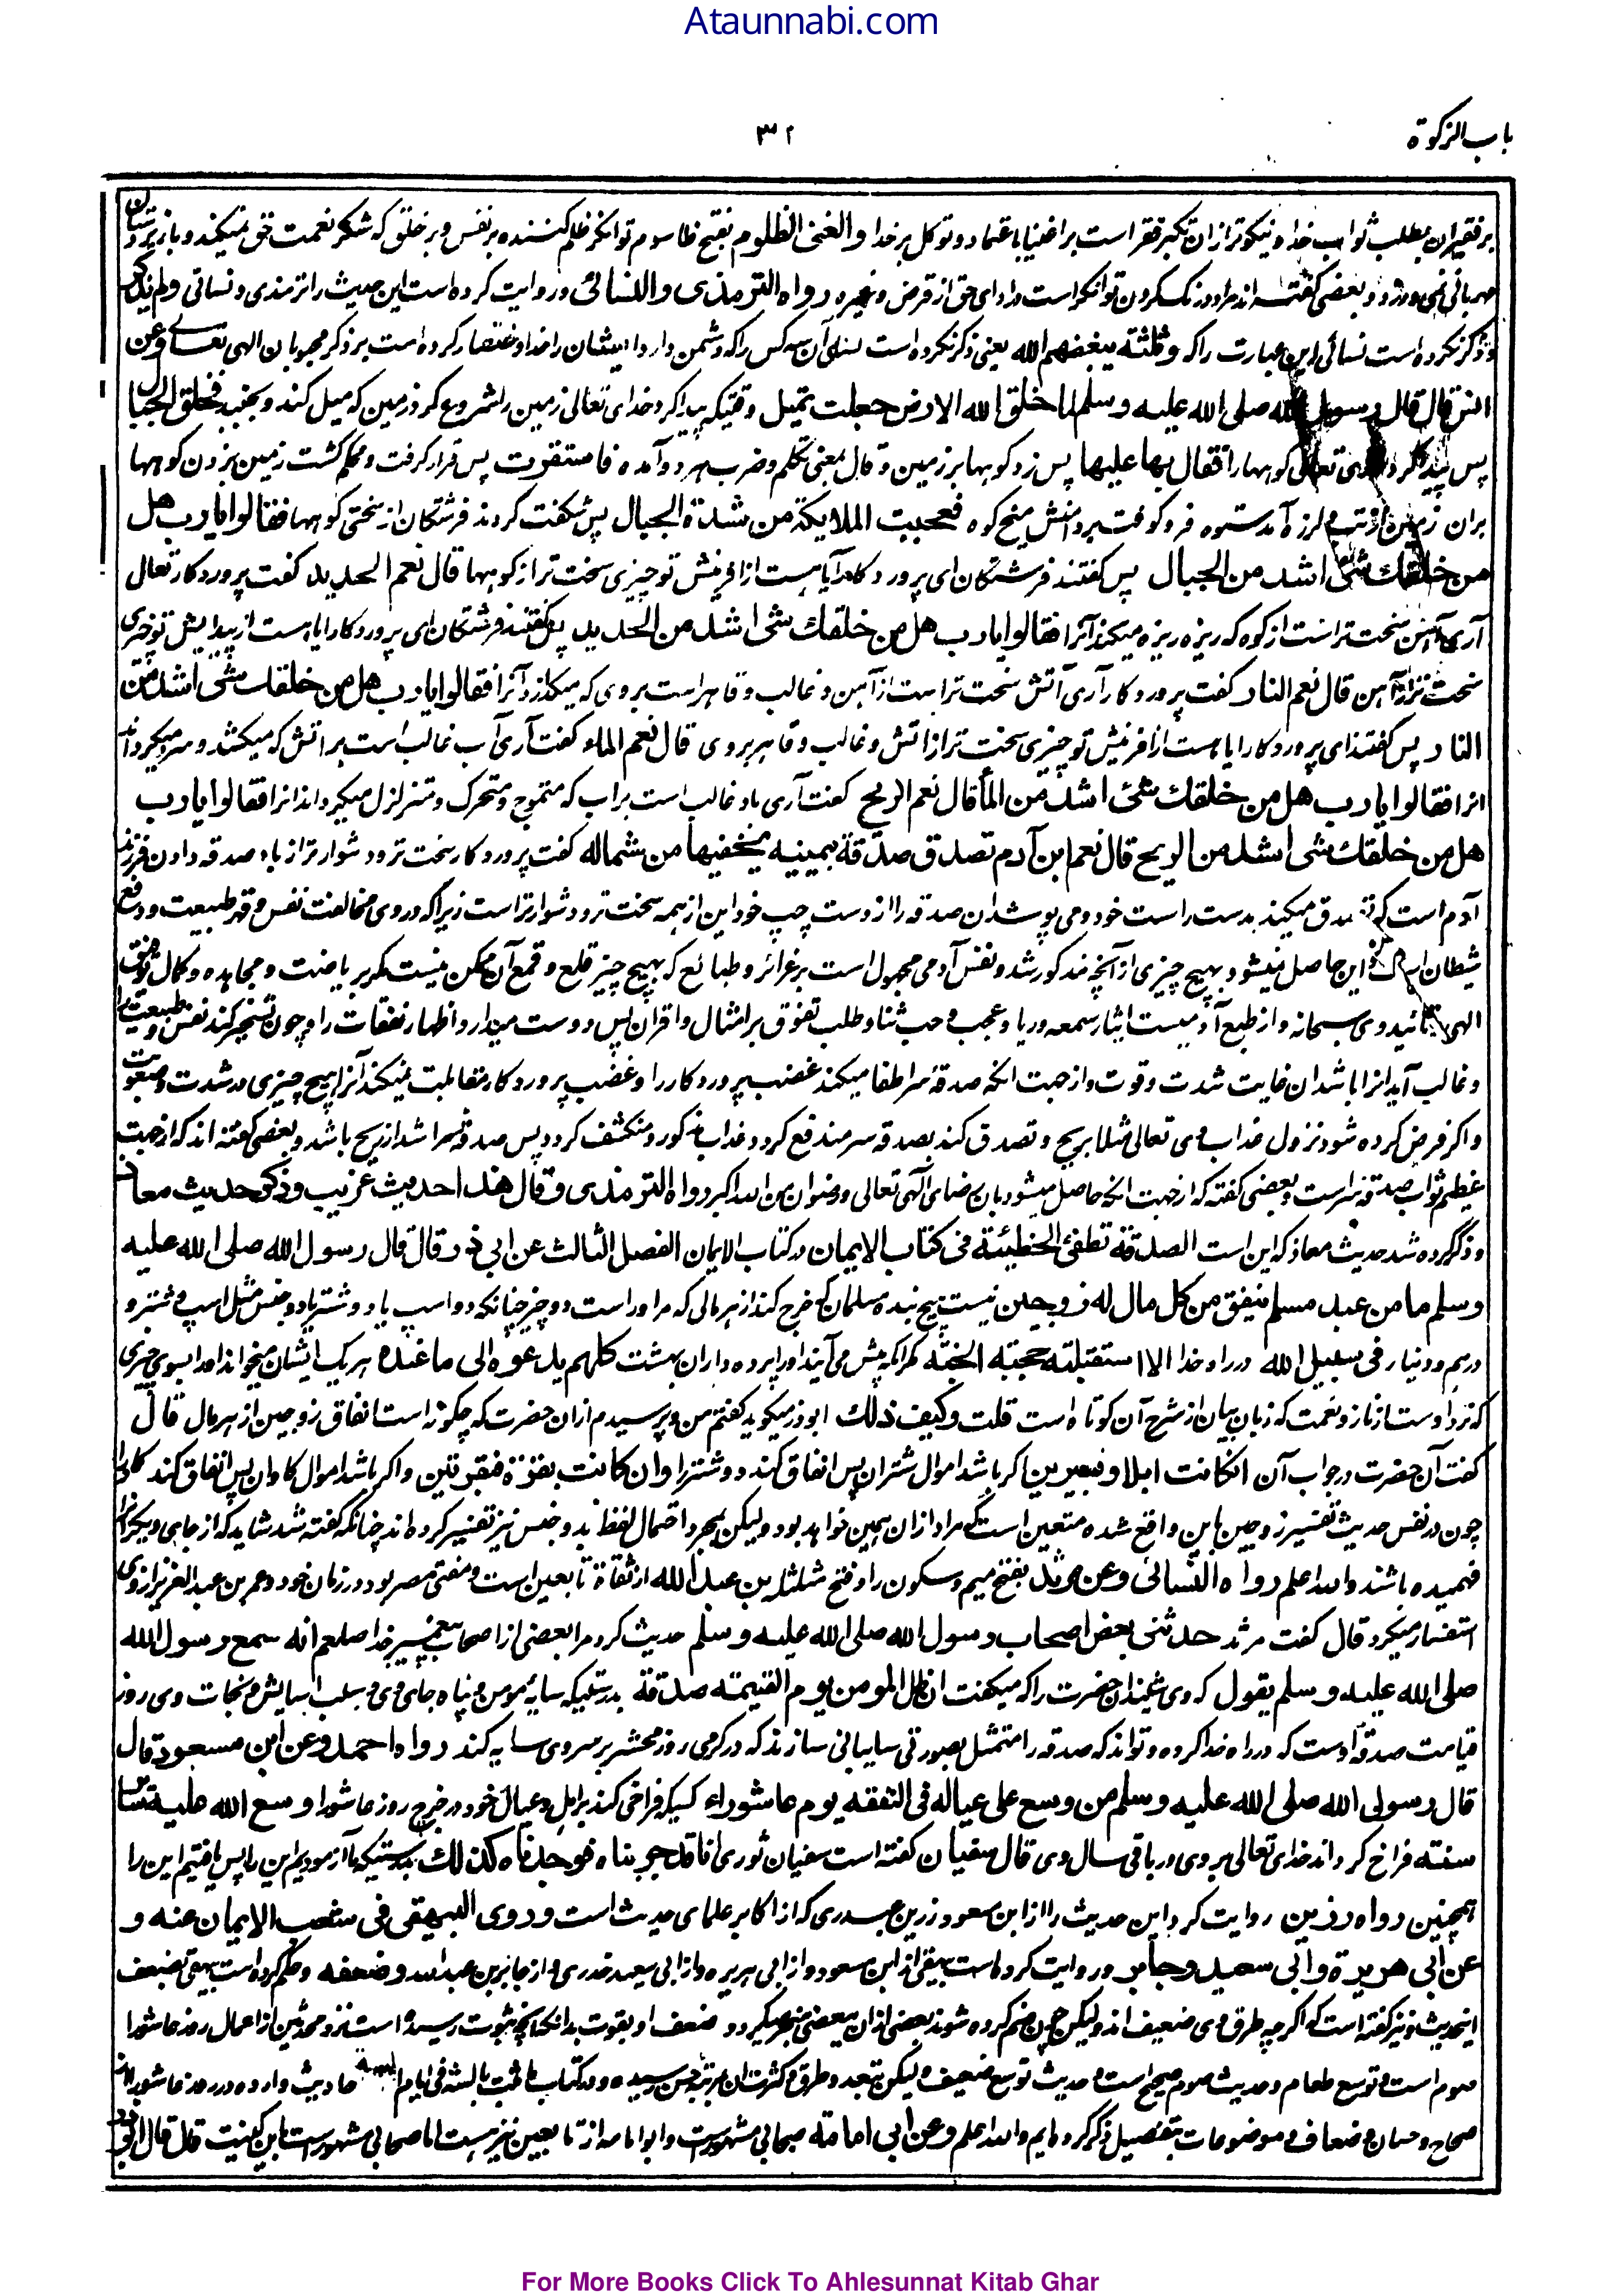 Ataunnabi.com
باب الزکوة
۳۲
بر فقیران بطلب ثواب خدا و نیکوتر ازان تکبر فقر است بر اغنیا باعتماد و توکل بر خدا والغنی الظلوم بفتح ظا سوم توانگر ظلم کننده بر نفس و بر خلق که شکر نعمت حق نمیکند و بازیردستان
مهربانی نمی ورزد و بعضی گفته اند مراد درنگ کردن توانگر است در ادای حق از قرض و غیره رواه الترمذی والنسائی و روایت کرده است این حدیث را ترمذی و نسائی ولم یذکر
و ذکر نکرده است نسائی این عبارت را که وثلثة یبغضهم الله یعنی ذکر نکرده است نسائی آن سه کس را که دشمن دارد ایشان را خدا و اختصار کرده است بر ذکر محبوبان الهی تعالے وعن
انس قال قال رسول الله صلی الله علیه وسلم لما خلق الله الارض جعلت تمیل وقتیکه پیدا کرد خدای تعالی زمین را شروع کرد زمین که میل کند و بجنبد فخلق الجبال
پس پیدا کرد خدای تعالی کوهها را فقال بها علیها پس زد کوهها بر زمین و قال بمعنی تکلم و ضرب هر دو آمده فاستقرت پس قرار گرفت و محکم گشت زمین بزدن کوهها
بران زمین از تب و لرزه آمد ستوه فرو کوفت بر دامنش میخ کوه فعجبت الملایکة من شدة الجبال پس شگفت کردند فرشتگان از سختی کوهها فقالوا یا رب هل
من خلقك شئ اشد من الجبال پس گفتند فرشتگان ای پروردگار آیا هست از افرینش تو چیزی سخت تر از کوهها قال نعم الحدید گفت پروردگار تعالی
آری آهن سخت تر است از کوه که ریزه ریزه میکند آنرا فقالوا یا رب هل من خلقك شئ اشد من الحدید پس گفتند فرشتگان ای پروردگار ایا هست از پیدایش تو چیزی
سخت تر از آهن قال نعم النار گفت پروردگار آری آتش سخت تر است از آهن و غالب و قاهر است بر وی که میگدازد آنرا فقالوا یا رب هل من خلقك شئ اشد من
النار پس گفتند ای پروردگار ایا هست از افرینش تو چیزی سخت تر از اتش و غالب و قاهر بر وی قال نعم الماء گفت آری آب غالب است بر اتش که میکشد و سرد میگرداند
انرا فقالوا یا رب هل من خلقك شئ اشد من الماء قال نعم الریح گفت آری باد غالب است بر اب که متموج و متحرک و متزلزل میگرداند انرا فقالوا یا رب
هل من خلقك شئ اشد من الریح قال نعم ابن آدم تصدق صدقة بیمینه یخفیها من شماله گفت پروردگار سخت تر و دشوار تر از باد صدقه دادن فرزند
آدم است که تصدق میکند بدست راست خود و می پوشد ان صدقه را از دست چپ خود این از همه سخت تر و دشوار تر است زیرا که در وی مخالفت نفس و قهر طبیعت و دفع
شیطان است که این حاصل نمیشود بهیچ چیزی از آنچه مذکور شد و نفس آدمی مجبول است بر غرائز و طبائع که بهیچ چیز قلع و قمع آن ممکن نیست مگر بریاضت و مجاهده و کمال توفیق
الهی و تائید وی سبحانه و از طبع آدمیست ایثار سمعه و ریا و عجب و حب ثنا و طلب تفوق بر امثال و اقران پس دوست میدارد اظهار نفقات را و چون تسخیر کند نفس و طبیعت را
و غالب آید انرا باشد ان غایت شدت و قوت و از جهت انکه صدقه سر اطفا میکند غضب پروردگار را و غضب پروردگار مقابلت نمیکند آنرا هیچ چیزی در شدت و صعوبت
و اگر فرض کرده شود نزول عذاب وی تعالی مثلا بریح و تصدق کند بصدقه سر مندفع گردد عذاب مذکور و منکشف گردد پس صدقه سر اشد از ریح باشد و بعضی گفته اند که از جهت
عظم ثواب صدقه سر است و بعضی گفته که از جهت انکه حاصل میشود بان رضای الهی تعالی و رضوان من الله اکبر رواه الترمذی وقال هذا حدیث غریب وذکر حدیث معاذ
و ذکر کرده شد حدیث معاذ که این است الصدقة تطفئ الخطیئة فی کتاب الایمان در کتاب الایمان الفصل الثالث عن ابی ذر قال قال رسول الله صلی الله علیه
وسلم ما من عبد مسلم ینفق من کل مال له زوجین نیست هیچ بنده مسلمان که خرج کند از هر مالی که مر اورا است دو چیز چنانکه دو اسپ یا دو شتر یا دو جنس مثل اسپ و شتر و
درهم و دینار فی سبیل الله در راه خدا الا استقبلته حجبة الجنة مگر آنکه پیش می آیند اورا پرده داران بهشت کلهم یدعوه الی ما عنده هر یک ایشان میخواند اورا بسوی چیزی
که نزد اوست از ناز و نعمت که زبان بیان از شرح آن کوتاه است قلت وکیف ذلك ابوذر میگوید گفتم من و پرسیدم ازان حضرت که چگونه است انفاق زوجین از هر مال قال
گفت آن حضرت در جواب آن ان کانت ابلا فبعیرین اگر باشد اموال شتران پس انفاق کند دو شتر را وان کانت بقرة فبقرتین و اگر باشد اموال گاوان پس انفاق کند گاو را
چون در نفس حدیث تفسیر زوجین باین واقع شده متعین است که مراد ازان همین خواهد بود ولیکن بمجرد احتمال لفظ بدو جنس نیز تفسیر کرده اند چنانکه گفته شد شاید که از جای دیگر انرا
فهمیده باشند والله اعلم رواه النسائی وعن مرثد بفتح میم و سکون را و فتح مثلثه بن عبد الله از ثقاة تابعین است و مفتی مصر بود در زمان خود و عمر بن عبد العزیز از وی
استفسار میکرد قال گفت مرثد حدثنی بعض اصحاب رسول الله صلی الله علیه وسلم حدیث کرد مرا بعضی از اصحاب پیغمبر خدا صلعم انه سمع رسول الله
صلی الله علیه وسلم یقول که وی شنید ان حضرت را که میگفت ان ظل المومن یوم القیمة صدقة بدرستیکه سایه مومن و پناه جای وی و سبب اسایش و نجات وی روز
قیامت صدقه اوست که در راه خدا کرده و تواند که صدقه را متمثل بصورتی سایبانی سازند که در گرمی روز محشر بر سر وی سایه کند رواه احمد وعن ابن مسعود قال
قال رسول الله صلی الله علیه وسلم من وسع علی عیاله فی النفقه یوم عاشوراء کسیکه فراخی کند بر اهل و عیال خود در خرج روز عاشورا وسع الله علیه سائر
سنته فراخ گرداند خدای تعالی بر وی در باقی سال وی قال سفیان گفته است سفیان ثوری انا قد جربناه فوجدناه کذلك بدرستیکه ما آزمودیم این را پس یافتیم این را
همچنین رواه رزین روایت کرد این حدیث را از ابن مسعود رزین عبدری که از اکابر علمای حدیث است وروی البیهقی فی شعب الایمان عنه و
عن ابی هریرة وابی سعید وجابر و روایت کرده است بیهقی از ابن مسعود و از ابی هریره و از ابی سعید خدری و از جابر بن عبد الله وضعفه و حکم کرده است بیهقی بضعف
اینحدیث و نیز گفته است که اگرچه طرق وی ضعیف اند ولیکن چون ضم کرده شوند بعضی ازان ببعضی منجبر میگردد ضعف او بقوت بدانکه آنچه بثبوت رسیده است نزد محدثین از اعمال روز عاشورا
صوم است و توسع طعام و حدیث صوم صحیح است و حدیث توسع ضعیف ولیکن بتعدد طرق و کثرت ان بمرتبه حسن رسیده و در کتاب ما ثبت بالسنة فی ایام السنة احادیث وارده در روز عاشورا از
صحاح و حسان و ضعاف و موضوعات بتفصیل ذکر کرده ایم والله اعلم وعن ابی امامة صحابی مشهور است و ابو امامه از تابعین نیز هست اما صحابی مشهور است باین کنیت قال قال ابوذر
For More Books Click To Ahlesunnat Kitab Ghar